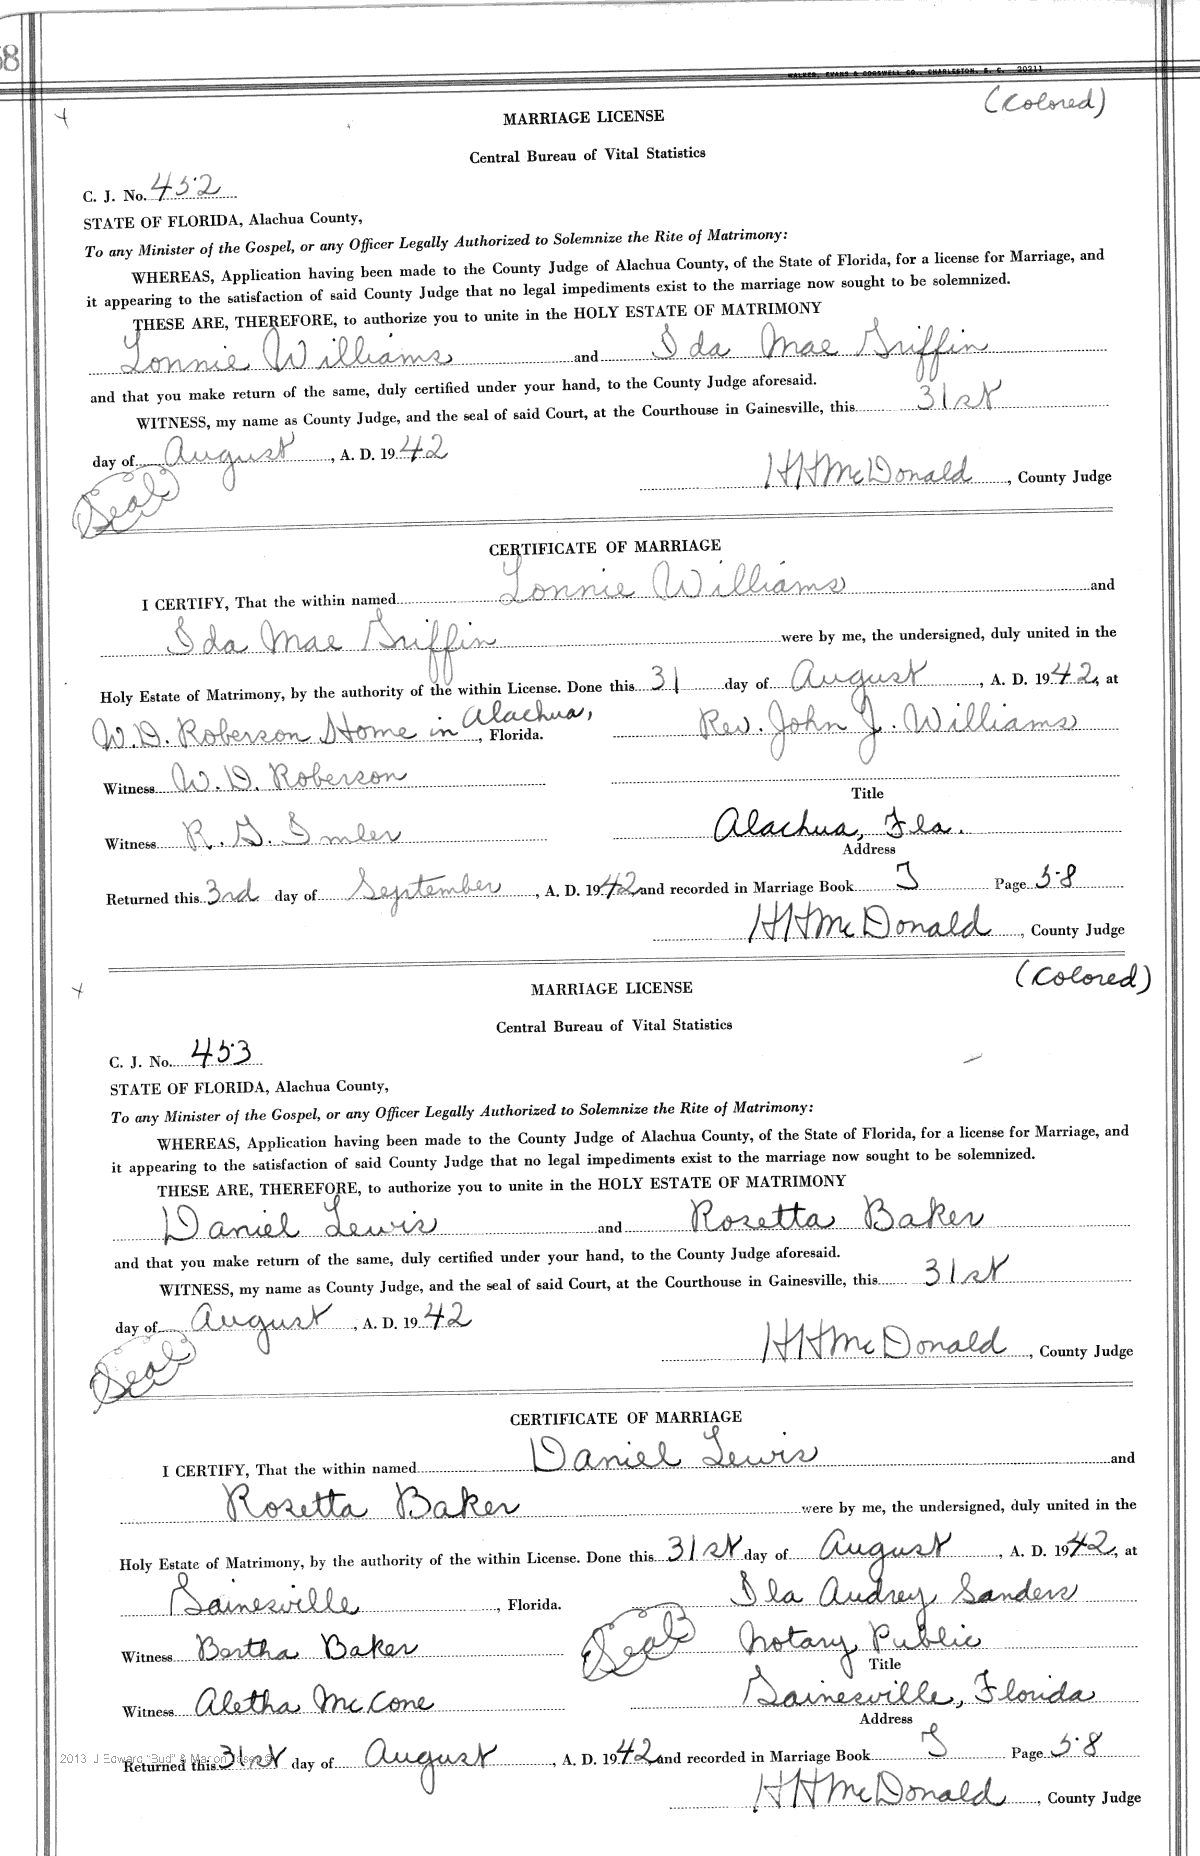 58
WALKER, EVANS & COGSWELL CO., CHARLESTON, S. C. 20211
(Colored)
MARRIAGE LICENSE
Central Bureau of Vital Statistics
C. J. No. 452
STATE OF FLORIDA, Alachua County,
To any Minister of the Gospel, or any Officer Legally Authorized to Solemnize the Rite of Matrimony:
WHEREAS, Application having been made to the County Judge of Alachua County, of the State of Florida, for a license for Marriage, and
it appearing to the satisfaction of said County Judge that no legal impediments exist to the marriage now sought to be solemnized.
THESE ARE, THEREFORE, to authorize you to unite in the HOLY ESTATE OF MATRIMONY
Lonnie Williams and Ida Mae Griffin
and that you make return of the same, duly certified under your hand, to the County Judge aforesaid.
WITNESS, my name as County Judge, and the seal of said Court, at the Courthouse in Gainesville, this 31st
day of August, A. D. 1942
(Seal) HHMcDonald, County Judge
CERTIFICATE OF MARRIAGE
I CERTIFY, That the within named Lonnie Williams and
Ida Mae Griffin were by me, the undersigned, duly united in the
Holy Estate of Matrimony, by the authority of the within License. Done this 31 day of August, A. D. 1942, at
W. D. Roberson Home in Alachua, , Florida. Rev. John J. Williams
Witness W. D. Roberson
Title
Witness R. G. Alachua, Fla.
Address
Returned this 3rd day of September, A. D. 1942 and recorded in Marriage Book Page 58
HHMcDonald, County Judge
(Colored)
MARRIAGE LICENSE
Central Bureau of Vital Statistics
C. J. No. 453
STATE OF FLORIDA, Alachua County,
To any Minister of the Gospel, or any Officer Legally Authorized to Solemnize the Rite of Matrimony:
WHEREAS, Application having been made to the County Judge of Alachua County, of the State of Florida, for a license for Marriage, and
it appearing to the satisfaction of said County Judge that no legal impediments exist to the marriage now sought to be solemnized.
THESE ARE, THEREFORE, to authorize you to unite in the HOLY ESTATE OF MATRIMONY
Daniel Lewis and Rosetta Baker
and that you make return of the same, duly certified under your hand, to the County Judge aforesaid.
WITNESS, my name as County Judge, and the seal of said Court, at the Courthouse in Gainesville, this 31st
day of August, A. D. 1942
(Seal) HHMcDonald, County Judge
CERTIFICATE OF MARRIAGE
I CERTIFY, That the within named Daniel Lewis and
Rosetta Baker were by me, the undersigned, duly united in the
Holy Estate of Matrimony, by the authority of the within License. Done this 31st day of August, A. D. 1942, at
Gainesville, Florida. Ila Audrey Sanders
Witness Bertha Baker (Seal) Notary Public
Title
Witness Aletha McCone Gainesville, Florida
Address
Returned this 31st day of August, A. D. 1942 and recorded in Marriage Book Page 58
HHMcDonald, County Judge